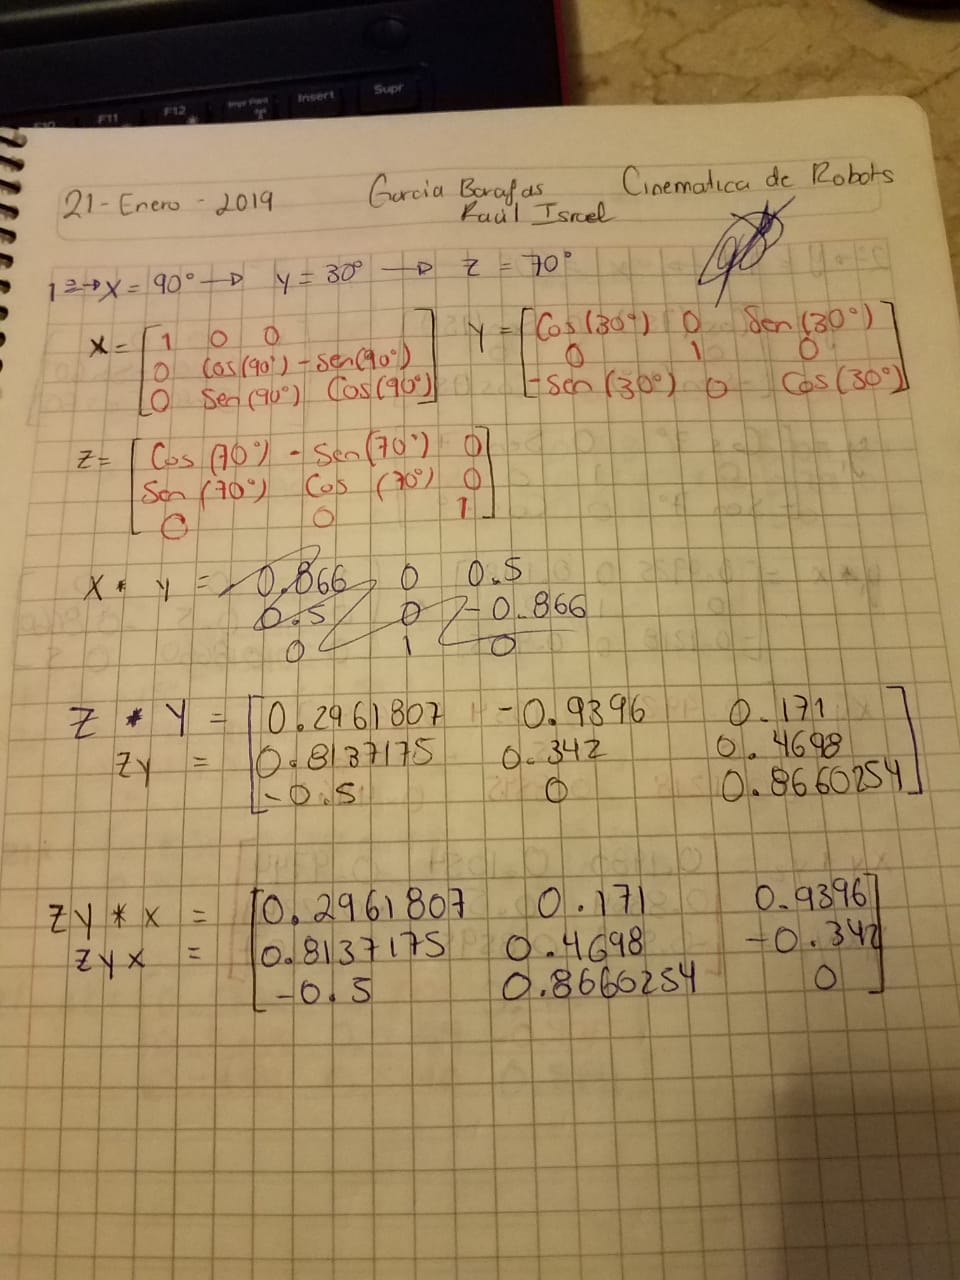 F11 F12 Impr Pant Insert Supr
21-Enero-2019 Garcia Barajas Cinematica de Robots
Raúl Israel
1=>X=90° → Y=30° → Z=70°
X= [1 0 0] Y= [Cos(30°) 0 Sen(30°)]
[0 Cos(90°) -Sen(90°)] [0 1 0]
[0 Sen(90°) Cos(90°)] [-Sen(30°) 0 Cos(30°)]
Z= [Cos(70°) -Sen(70°) 0]
[Sen(70°) Cos(70°) 0]
[0 0 1]
X * Y = 0.866 0 0.5
0.5 0 -0.866
0 1 0
Z * Y = [0.2961807 -0.9396 0.171]
ZY = [0.8137175 0.342 0.4698]
[-0.5 0 0.8660254]
ZY*X = [0.2961807 0.171 0.9396]
ZYX = [0.8137175 0.4698 -0.342]
[-0.5 0.8660254 0]